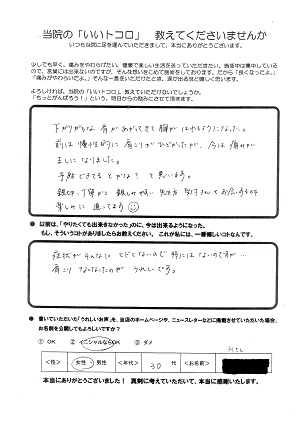 当院の「いいトコロ」 教えてくださいませんか
いつも当院に足を運んでいただきまして、本当にありがとうございます。
少しでも早く、痛みをやわらげたい。健康で楽しい生活を送っていただきたい。施術中は集中しているので、言葉には出来ないのですが、そんな想いをこめて施術をしております。だから「良くなったよ」
「痛みがやわらいだよ」。そんな一言をいただけたとき、涙が出るほど嬉しいのです。
よろしければ、当院の「いいトコロ」教えていただけないでしょうか。
「もっとがんばろう！」という、明日からの励みにさせて頂きます。
下がりがちな肩があがってきて胸がはれるようになった。
前は慢性的に肩こりがひどかったが、今は痛みが
ましになりました。
予防できてるとかな？と思います。
親切、丁寧かつ親しみやすい先生方、受付さんとお会いするのを
楽しみに通ってます
● 以前は、「やりたくても出来きなかった」のに、今は出来るようになった。
もし、そういうコトがありましたらお教えください。これが私には、一番嬉しいコトなんです。
症状がそんなにひどくないので特にはないのですが…
肩こりなくなったのがうれしいです。
● 書いていただいた「うれしいお声」を、当店のホームページや、ニュースレターなどに掲載させていただいた場合、
お名前を公開してもよろしいですか？
① OK ② イニシャルならOK ③ ダメ
＜性＞ 女性・男性 ＜年代＞ 30 代 ＜お名前＞
本当にありがとうございました！ 真剣に考えていただいて、本当に感謝いたします。